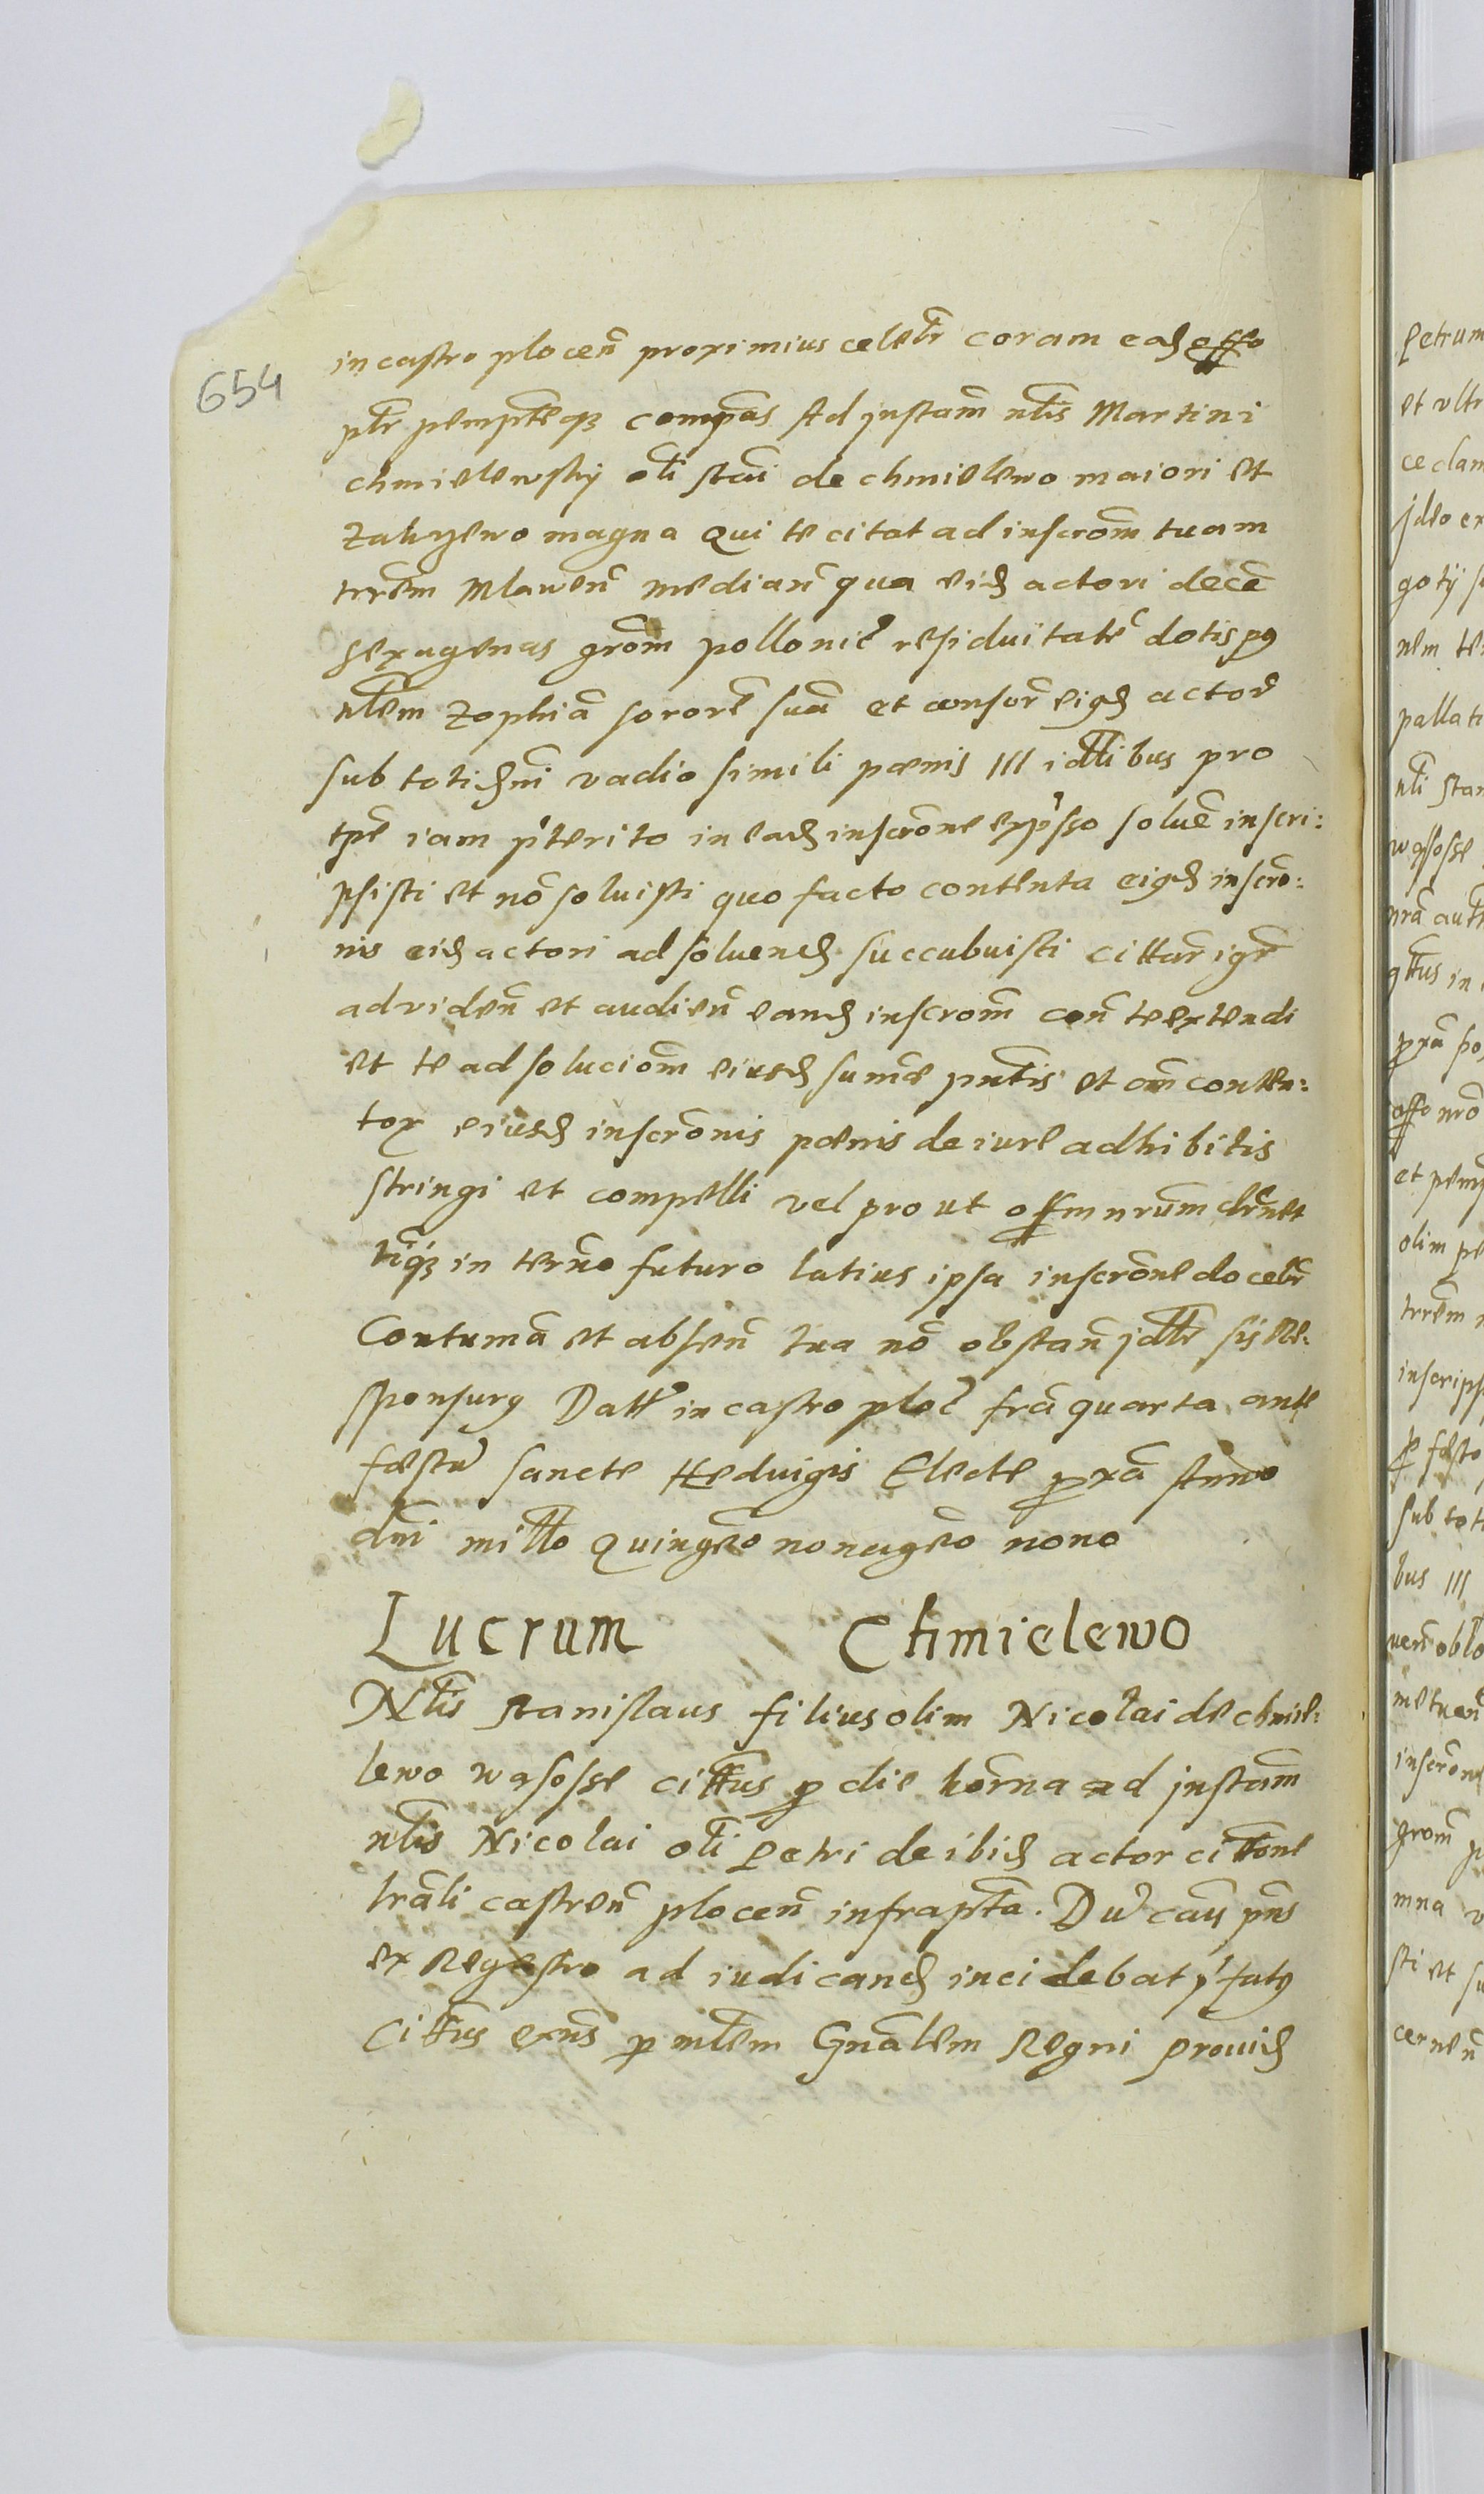 654
in castro plocen̄ proximius celebr̄ coram eod offo
ptr̄ pempteqȝ compas Ad jnstam̄ nlis Martini
chmielewskÿ oli stai de chmielewo maiori et
zalugewo magna Qui te citat ad inscrom̄ tuam
trrem̄ Mlauen̄ median̄ qua eid actori decē
sexagenas grom̄ pollonic residuitatē dotis p
nlem zophiā sororē suā et consor̄ eigd actor̄
sub totidm̄ vadio simili pœnis III idtibus pro
tpē iam p'terito in ead inscrōne exp'sso soluē inscri:
psisti et nō soluisti quo facto contenta eigd inscro:
nis eid actori ad soluend succubuisti cittar̄ igr̄
ad viden̄ et audien̄ eand inscrom̄ con̄ te extendi
et te ad soluciom̄ eiusd sumē pntis et om̄ conten:
tor eiusd inscrōnis pœnis de iure adhibitis
stringi et compelli vel prout offm nrum dr̄net
tiqȝ in termo futuro latius ipsa inscrōne docebr̄
Contumā et absen̄ tua nō obstan̄ jdtr̄ sis Re:
sponsurg Datt in castro ploc̄ frā quarta ante
fæstū sancte Hedvigis Electe prxā Anno
dni millo Quingēo nonagēo nono
Lucrum Chmielewo
Nlis stanislaus filius olim Nicolai de chmie:
lewo wąsosse cittus p die hōrna ad jnstam̄
nlis Nicolai oli Petri de ibid actor cittone
lrāli castren̄ plocen̄ infrapta. Dū cau pns
ex Regestro ad iudicand incidebat p'fatg
Cittus exns p mlem Gnālem Regni prouid
Petrum
et vltr
ce clam
jdeo ex
nem te
pallati
nli stan
wąsosse
nrā aut
cittus in
offo nrō
et pemp
olim pe
trrem̄
inscrips
p fæsto
sub toti
bus III
inscrōne
grom̄ p
mna v
sti et su
cernen̄